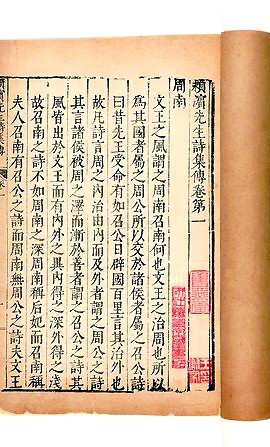 潁濵先生詩集傳卷第一
周南
文王之風謂之周南召南何也文王之治周也所以
為其國者屬之周公所以交於諸侯者屬之召公詩
曰昔先王受命有如召公日辟國百里言其治外也
故凡詩言周之内治由内而及外者謂之周公之詩
其言諸侯被周之澤而漸於善者謂之召公之詩其
風皆出於文王而有内外之異内得之深外得之淺
故召南之詩不如周南之深周南稱后妃而召南稱
夫人召南有召公之詩而周南無周公之詩夫文王